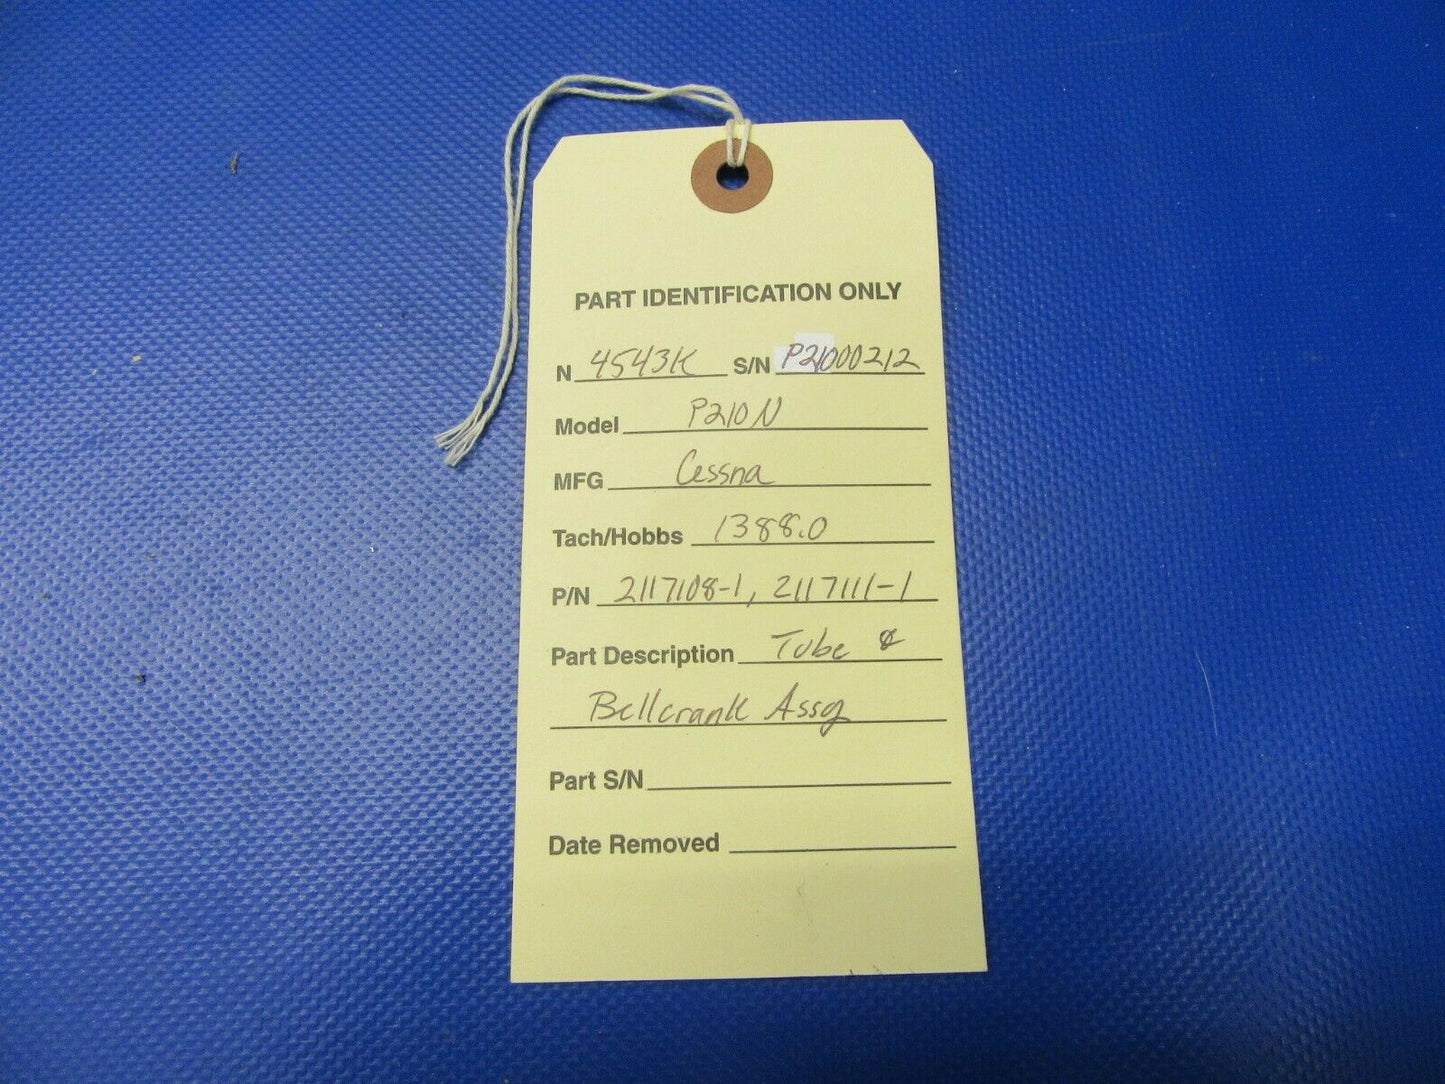 PART IDENTIFICATION ONLY
N 4543K S/N P21000212
Model P210N
MFG Cessna
Tach/Hobbs 1388.0
P/N 2117108-1, 2117111-1
Part Description Tube &
Bellcrank Assy
Part S/N
Date Removed